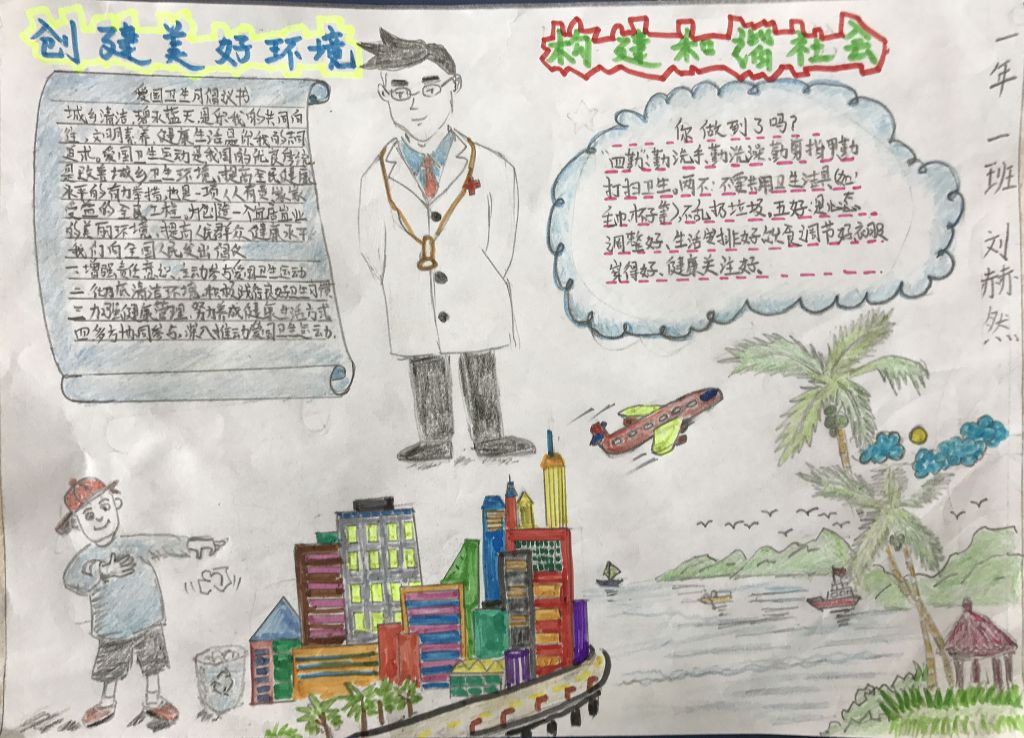 创建美好环境
构建和谐社会
爱国卫生月倡议书
城乡清洁、碧水蓝天是你我的共同向
往,文明素养、健康生活是你我的共同
追求。爱国卫生运动是我们的优良传统
是改善城乡卫生环境、提高全民健康
水平的有力举措,也是一项人人有责、人人
受益的全民工程。为创造一个宜居宜业
的美丽环境、提高人民群众健康水平
我们向全国人民发出倡议
一.增强责任意识,主动参与爱国卫生运动
二.化为清洁环境,积极践行良好卫生习惯
三.加强健康管理,努力养成健康生活方式
四.多方协同参与,深入推动爱国卫生运动.
你做到了吗?
四勤:勤洗手、勤洗澡、勤剪指甲、勤
打扫卫生。两不:不要共用卫生洁具(如:
毛巾、杯子等)不乱扔垃圾。五好:是心态
调整好、生活安排好、饮食调节好、衣服
穿得好、健康关注好。
一年一班 刘赫然